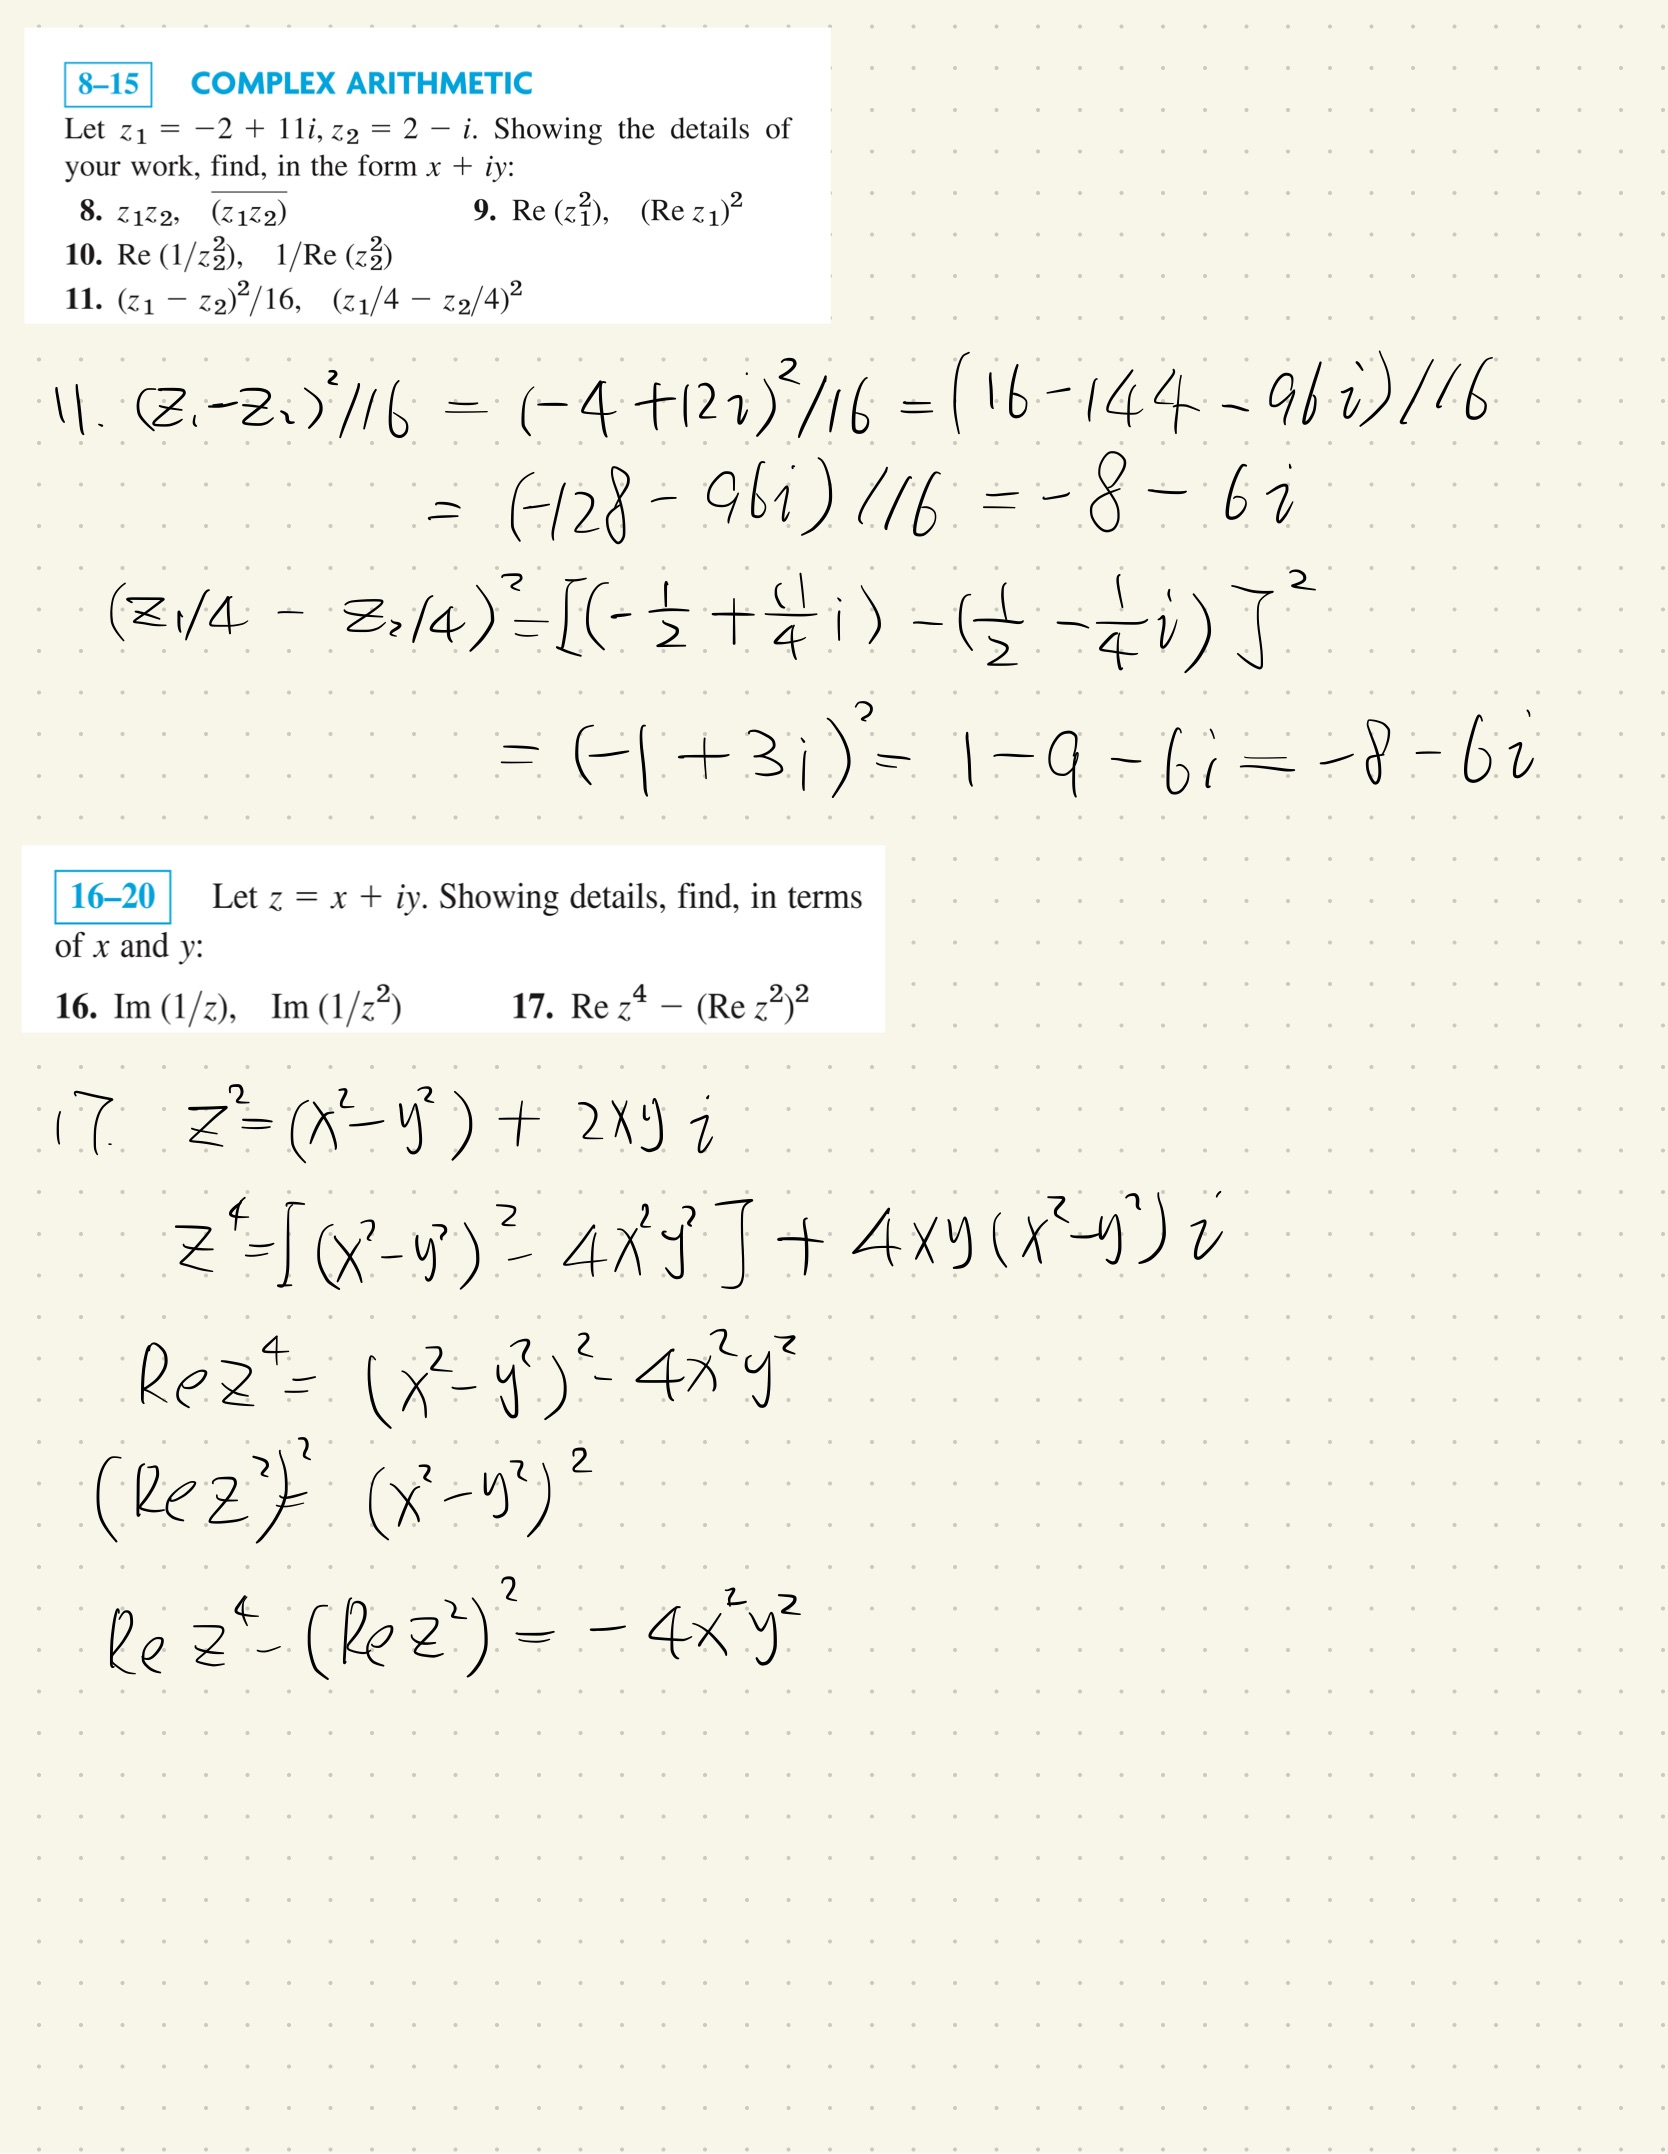 8–15 COMPLEX ARITHMETIC
Let z₁ = −2 + 11i, z₂ = 2 − i. Showing the details of
your work, find, in the form x + iy:
8. z₁z₂, \overline{(z₁z₂)} 9. Re (z₁²), (Re z₁)²
10. Re (1/z₂²), 1/Re (z₂²)
11. (z₁ − z₂)²/16, (z₁/4 − z₂/4)²
11. (z₁-z₂)²/16 = (-4+12i)²/16 = (16-144-96i)/16
= (-128-96i)/16 = -8-6i
(z₁/4 - z₂/4)² = [(-1/2 + 11/4 i) - (1/2 - 1/4 i)]²
= (-1+3i)² = 1-9-6i = -8-6i
16–20 Let z = x + iy. Showing details, find, in terms
of x and y:
16. Im (1/z), Im (1/z²) 17. Re z⁴ − (Re z²)²
17. z² = (x²-y²) + 2xy i
z⁴ = [(x²-y²)² - 4x²y²] + 4xy(x²-y²) i
Re z⁴ = (x²-y²)² - 4x²y²
(Re z²)² = (x²-y²)²
Re z⁴ - (Re z²)² = -4x²y²